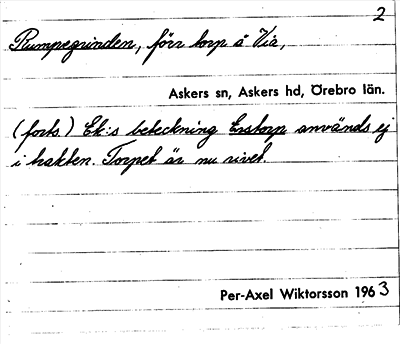 2
Rumpegrinden, förr torp å Via,
Askers sn, Askers hd, Örebro län.
(forts.) Ek:s beteckning Erstorp används ej
i trakten. Torpet är nu rivet.
Per-Axel Wiktorsson 1963